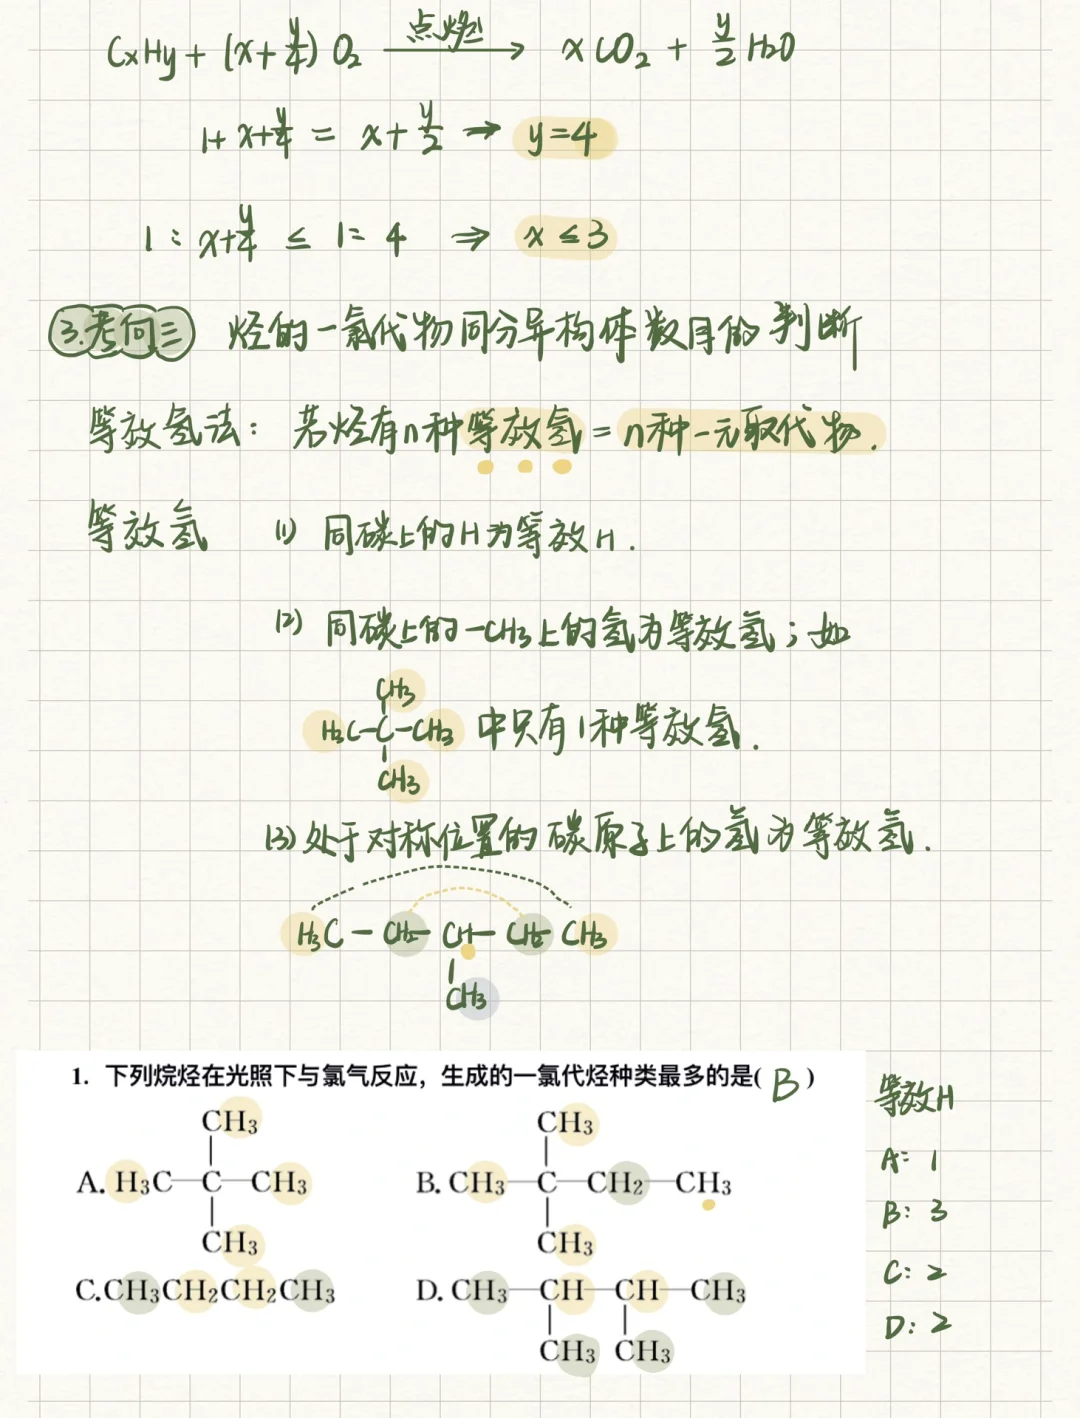 CxHy + (x+y/4) O₂ —点燃→ xCO₂ + y/2 H₂O
1+x+y/4 = x+y/2 → y=4
1:x+y/4 ≤ 1=4 ⇒ x≤3
3.考向三 烃的一氯代物同分异构体数目的判断
等效氢法: 若烃有n种等效氢=n种一元取代物.
等效氢 (1) 同碳上的H为等效H.
(2) 同碳上的-CH₃上的氢为等效氢;如
CH₃
H₃C-C-CH₃ 中只有1种等效氢.
CH₃
(3)处于对称位置的碳原子上的氢为等效氢.
H₃C-CH₂-CH-CH₂ CH₃
CH₃
1. 下列烷烃在光照下与氯气反应,生成的一氯代烃种类最多的是( B )
CH₃
A. H₃C—C—CH₃
CH₃
CH₃
B. CH₃—C—CH₂—CH₃
CH₃
C.CH₃CH₂CH₂CH₃
D. CH₃—CH—CH—CH₃
CH₃ CH₃
等效H
A: 1
B: 3
C: 2
D: 2